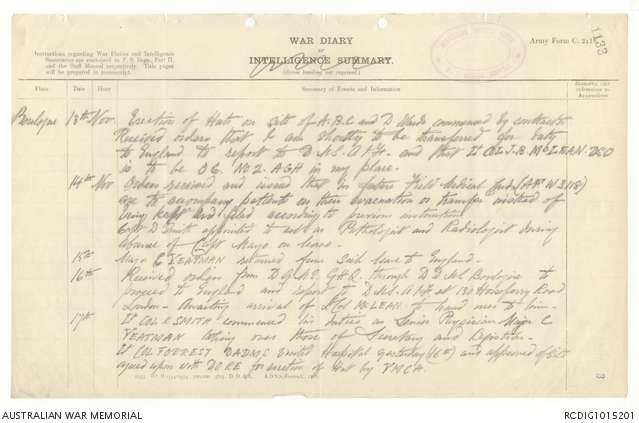 1133
WAR DIARY
or
INTELLIGENCE SUMMARY.
(Erase heading not required.)
Army Form C. 2118.
Instructions regarding War Diaries and Intelligence
Summaries are contained in F. S. Regs., Part II.
and the Staff Manual respectively. Title pages
will be prepared in manuscript.
Place Date Hour Summary of Events and Information Remarks and references to Appendices
Boulogne 13th Nov. Erection of Huts on site of A. B. C and D Wards commenced by contractor
Received orders that I am shortly to be transferred for duty
to England to report to D.M.S. A.I.F. and that Lt COL J.B. McLEAN DSO
is to be O.C. No 2 AGH in my place.
14th Nov Orders received and issued that in future Field Medical Cards (AF W 3118)
are to accompany patients on their evacuation or transfer instead of
being kept and filed according to previous instructions
Capt D Smith appointed to act as Pathologist and Radiologist during
absence of Capt Mayo on leave.
15th Major C YEATMAN returned from Sick leave to England.
16th Received orders from D.G.M.S. G.H.Q. through D.D.M.S. Boulogne to
proceed to England and report to D.M.S. A.I.F. at 130 Horseferry Road
London - Awaiting arrival of Lt Col McLEAN to hand over to him.
17th Lt COL R SMITH commenced his duties as Senior Physician Major C
YEATMAN taking over those of Secretary and Registrar.
Lt COL FORREST DADMS visited Hospital yesterday (16th) and approved of site
agreed upon with DORE for erection of Hut by YMCA.
3
AUSTRALIAN WAR MEMORIAL
RCDIG1015201